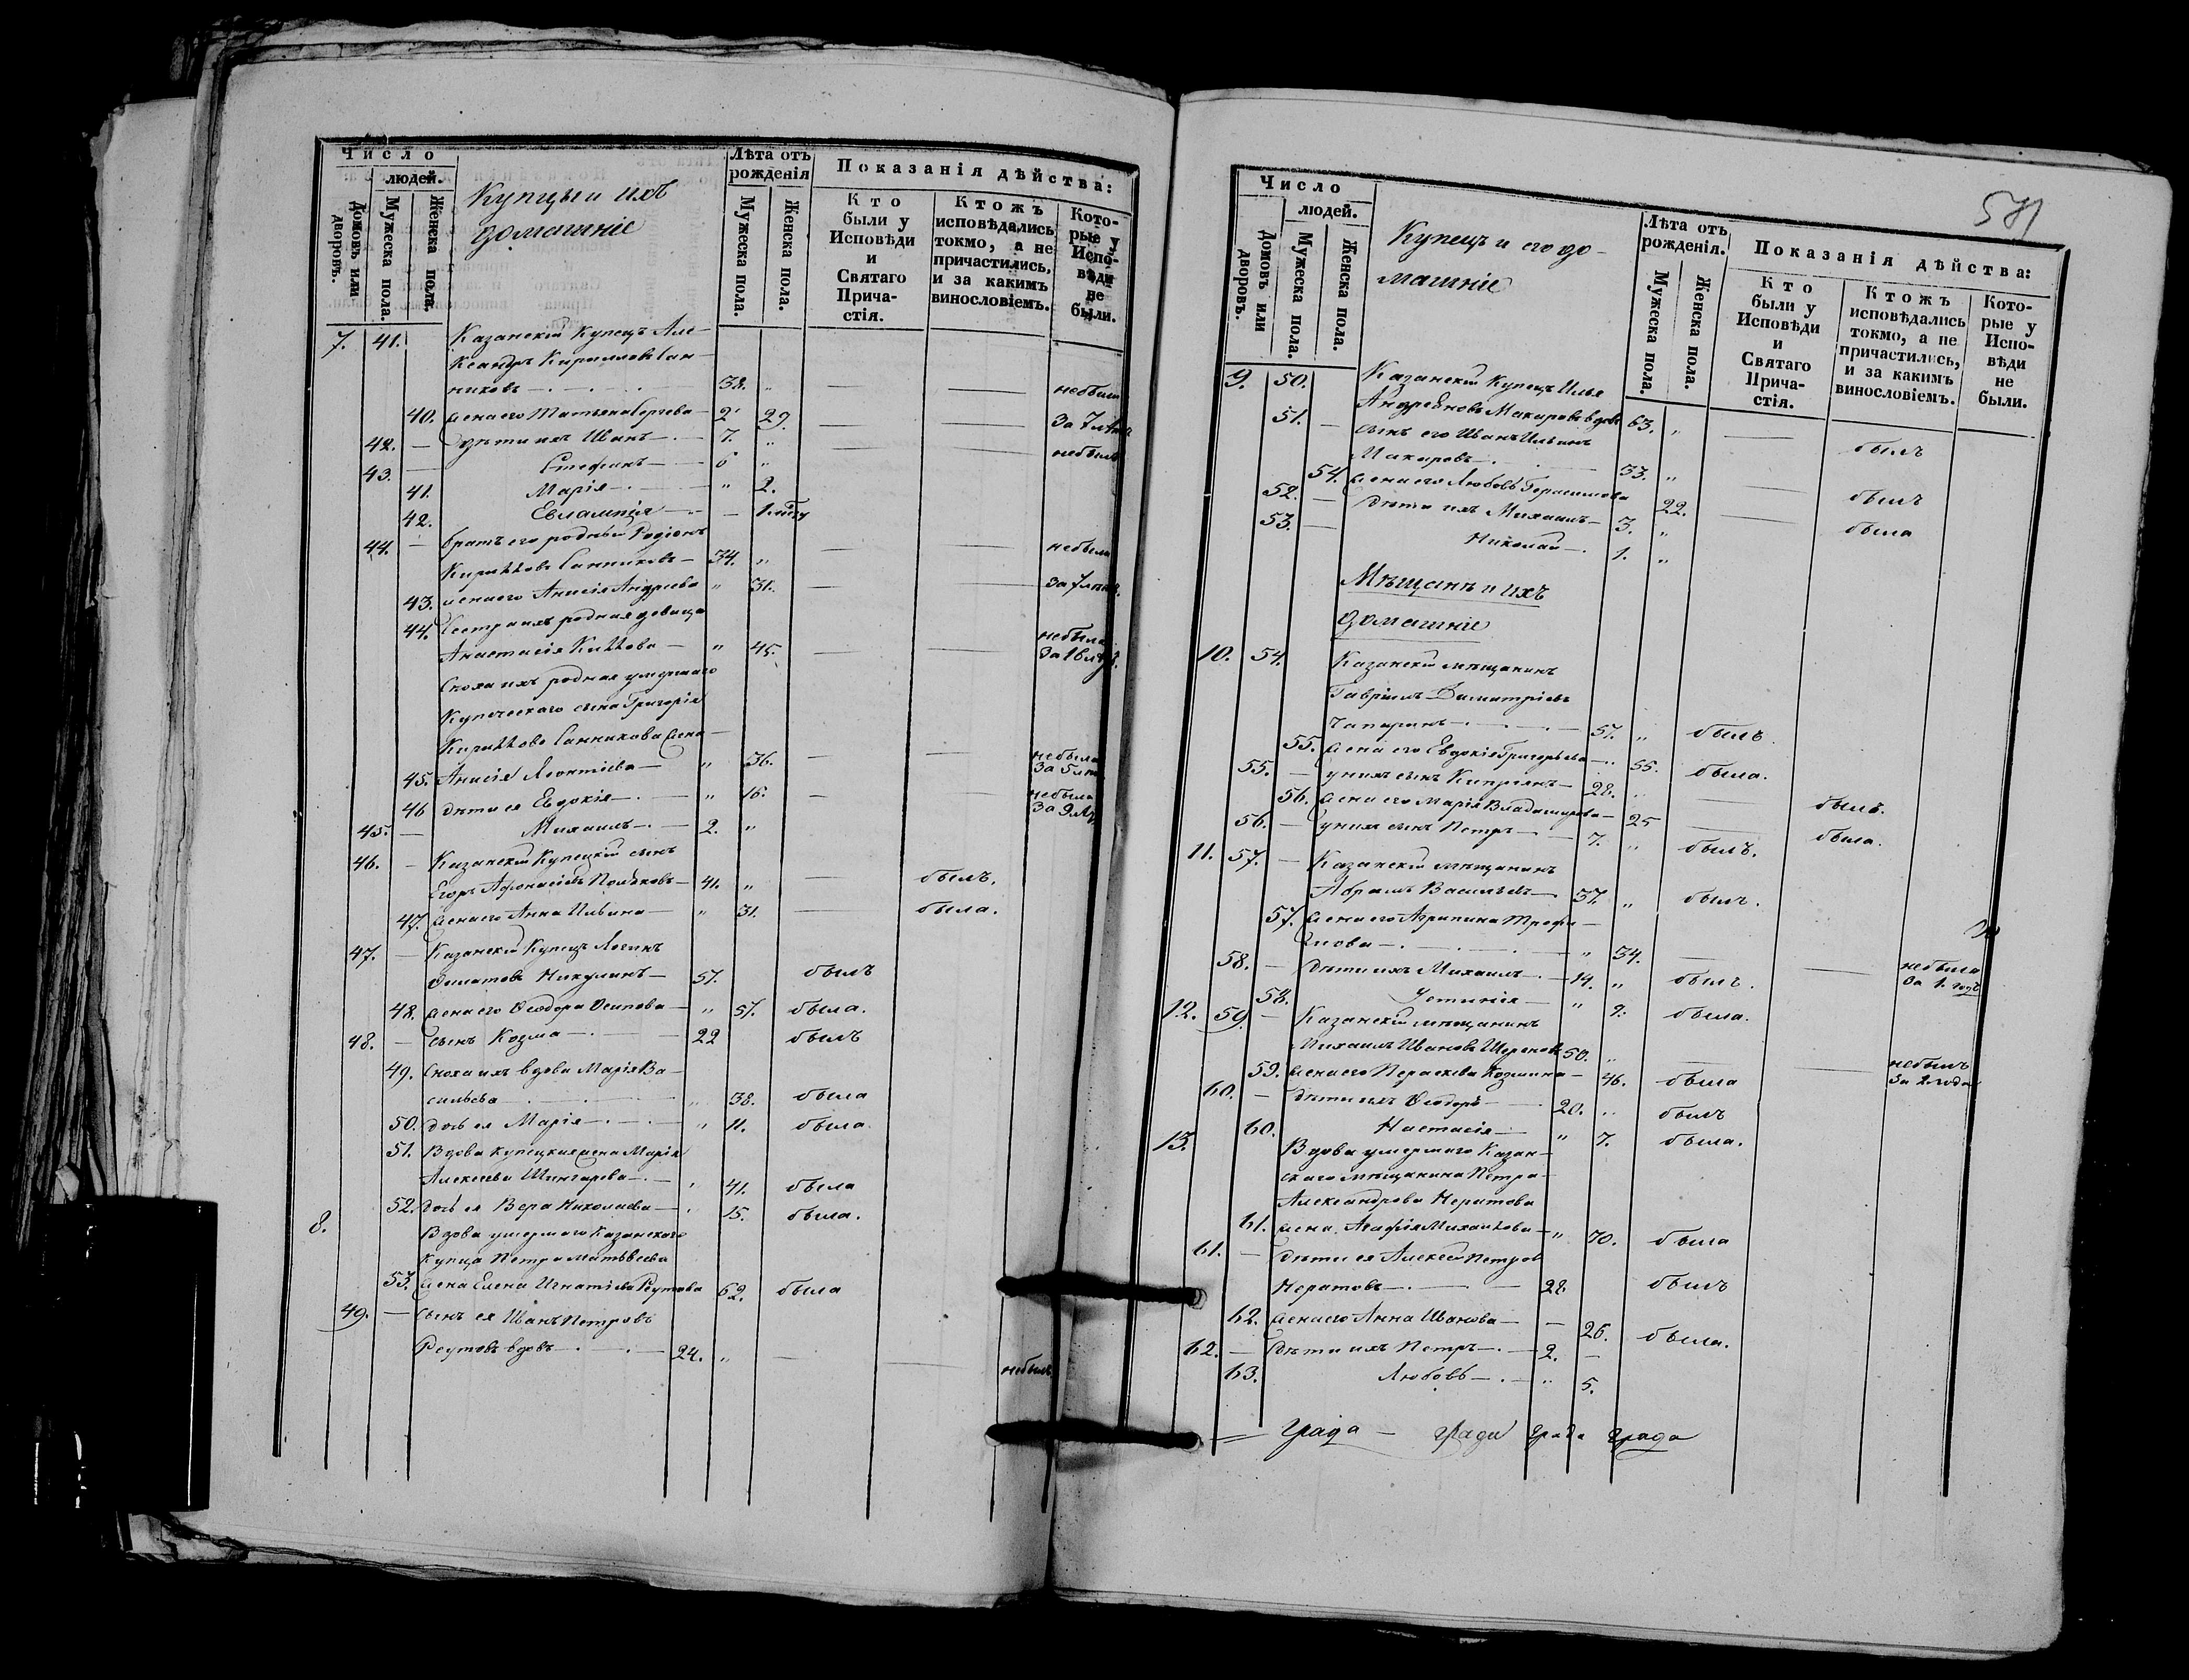 Число
людей.
Домовъ или дворовъ.
Мужеска пола.
Женска пола.
Купцы и ихъ
домашніе
Лѣта отъ рожденія
Мужеска пола.
Женска пола.
Показанія дѣйства:
Кто были у Исповѣди и Святаго Прича-стія.
Ктожъ исповѣдались токмо, а не причастились, и за какимъ винословіемъ.
Кото-рые у Испо-вѣди не были.
7. 41. Казанскій Купецъ Але-
ксандръ Кирилловъ Сан-
никовъ — 38. „ — — небылъ
40. жена его Татьяна Сергеева — 29. — — за 7 лѣтъ
42. — дѣти ихъ Иванъ — 7. „ небылъ
43. — Стефанъ — 6 „
41. Марія — „ 2.
42. Евлампія — — 1 году
44. — братъ его родный Родіонъ
Кирилловъ Санниковъ — 34. „ — — небылъ
43. жена его Анисія Андреева „ 31. — — за 7 лѣтъ
44. Сестра ихъ родная девица
Анастасія Кирилова — „ 45. — — небыла за 16 лѣтъ
Сноха ихъ родная умершаго
Купеческаго сына Григорія
Кирилова Санникова жена —
45. Анисія Леонтіева — „ 36. — — небыла за 5 лѣтъ
46 дѣти ея Евдокія — „ 16. — — небыла за 9 лѣтъ
45. — Михаилъ — 2. „
46. — Казанскій Купецкій сынъ
Егоръ Афонасіевъ Поляковъ — 41. „ — былъ.
47. жена его Анна Ильина — „ 31. — была.
47. — Казанскій Купецъ Логинъ
Филатовъ Никулинъ — 57. былъ
48. жена его Ѳеодора Осипова — „ 57. была.
48. — сынъ Козма — 22 былъ
49. Сноха ихъ вдова Марія Ва-
сильева — „ 38. была
50. дочь ея Марія — „ 11. была.
51. Вдова купецкая жена Марія
Алексеева Шингарева — „ 41. была
52. дочь ея Вера Николаева — „ 15. была.
8. Вдова умершаго Казанскаго
Купца Петра Матвѣева
53. жена Елена Игнатіева Реутова 62. была
49. — сынъ ея Иванъ Петровъ
Реутовъ вдовъ — 24. „ — — небылъ
581
Число
людей.
Домовъ или дворовъ.
Мужеска пола.
Женска пола.
Купецъ и его до-
машніе
Лѣта отъ рожденія.
Мужеска пола.
Женска пола.
Показанія дѣйства:
Кто были у Исповѣди и Святаго Прича-стія.
Ктожъ исповѣдались токмо, а не причастились, и за какимъ винословіемъ.
Кото-рые у Испо-вѣди не были.
9. 50. Казанскій Купецъ Илья
Андреяновъ Макаровъ вдовъ 63. „ — былъ
51. — сынъ его Иванъ Ильинъ
Макаровъ — 33. „ — былъ
54. жена его Любовь Герасимова 22. — была
52. — дѣти ихъ Михаилъ — 3. „
53. — Николай — 1. „
Мѣщанъ и ихъ
домашніе
10. 54. Казанскій мѣщанинъ
Гавріилъ Димитріевъ
Чапуринъ — 57. „ былъ
55. жена его Евдокія Григорьева — „ 55. была.
55. — у нихъ сынъ Кипріянъ — 28. „ — былъ.
56. жена его Марія Владимирова — 25 — была.
56. — у нихъ сынъ Петръ — 7. „ былъ.
11. 57. — Казанскій мѣщанинъ
Абрамъ Васильевъ — 37. „ былъ.
57. жена его Агрипина Трофи-
мова — „ 34. — — небыла за 1. годъ
58. — дѣти ихъ Михаилъ — 14. „ былъ.
58. Устинія — „ 9. была.
12. 59. — Казанскій мѣщанинъ
Михаилъ Ивановъ 50. „ — — небылъ за 2 года
59. жена его Пераскева Козмина — 46. была
60. — дѣти ихъ Ѳеодоръ — 20. „ былъ
60. Настасія — „ 7. была.
13. Вдова умершаго Казан-
скаго мѣщанина Петра
Александрова Нератова
61. жена Агафія Михайлова — „ 70. была
61. — дѣти ея Алексей Петров
Нератовъ — 28. былъ
62. жена его Анна Иванова — — 26. была.
62. — дѣти ихъ Петръ — 2. —
63. Любовь — „ 5.
Града — Града Града Града